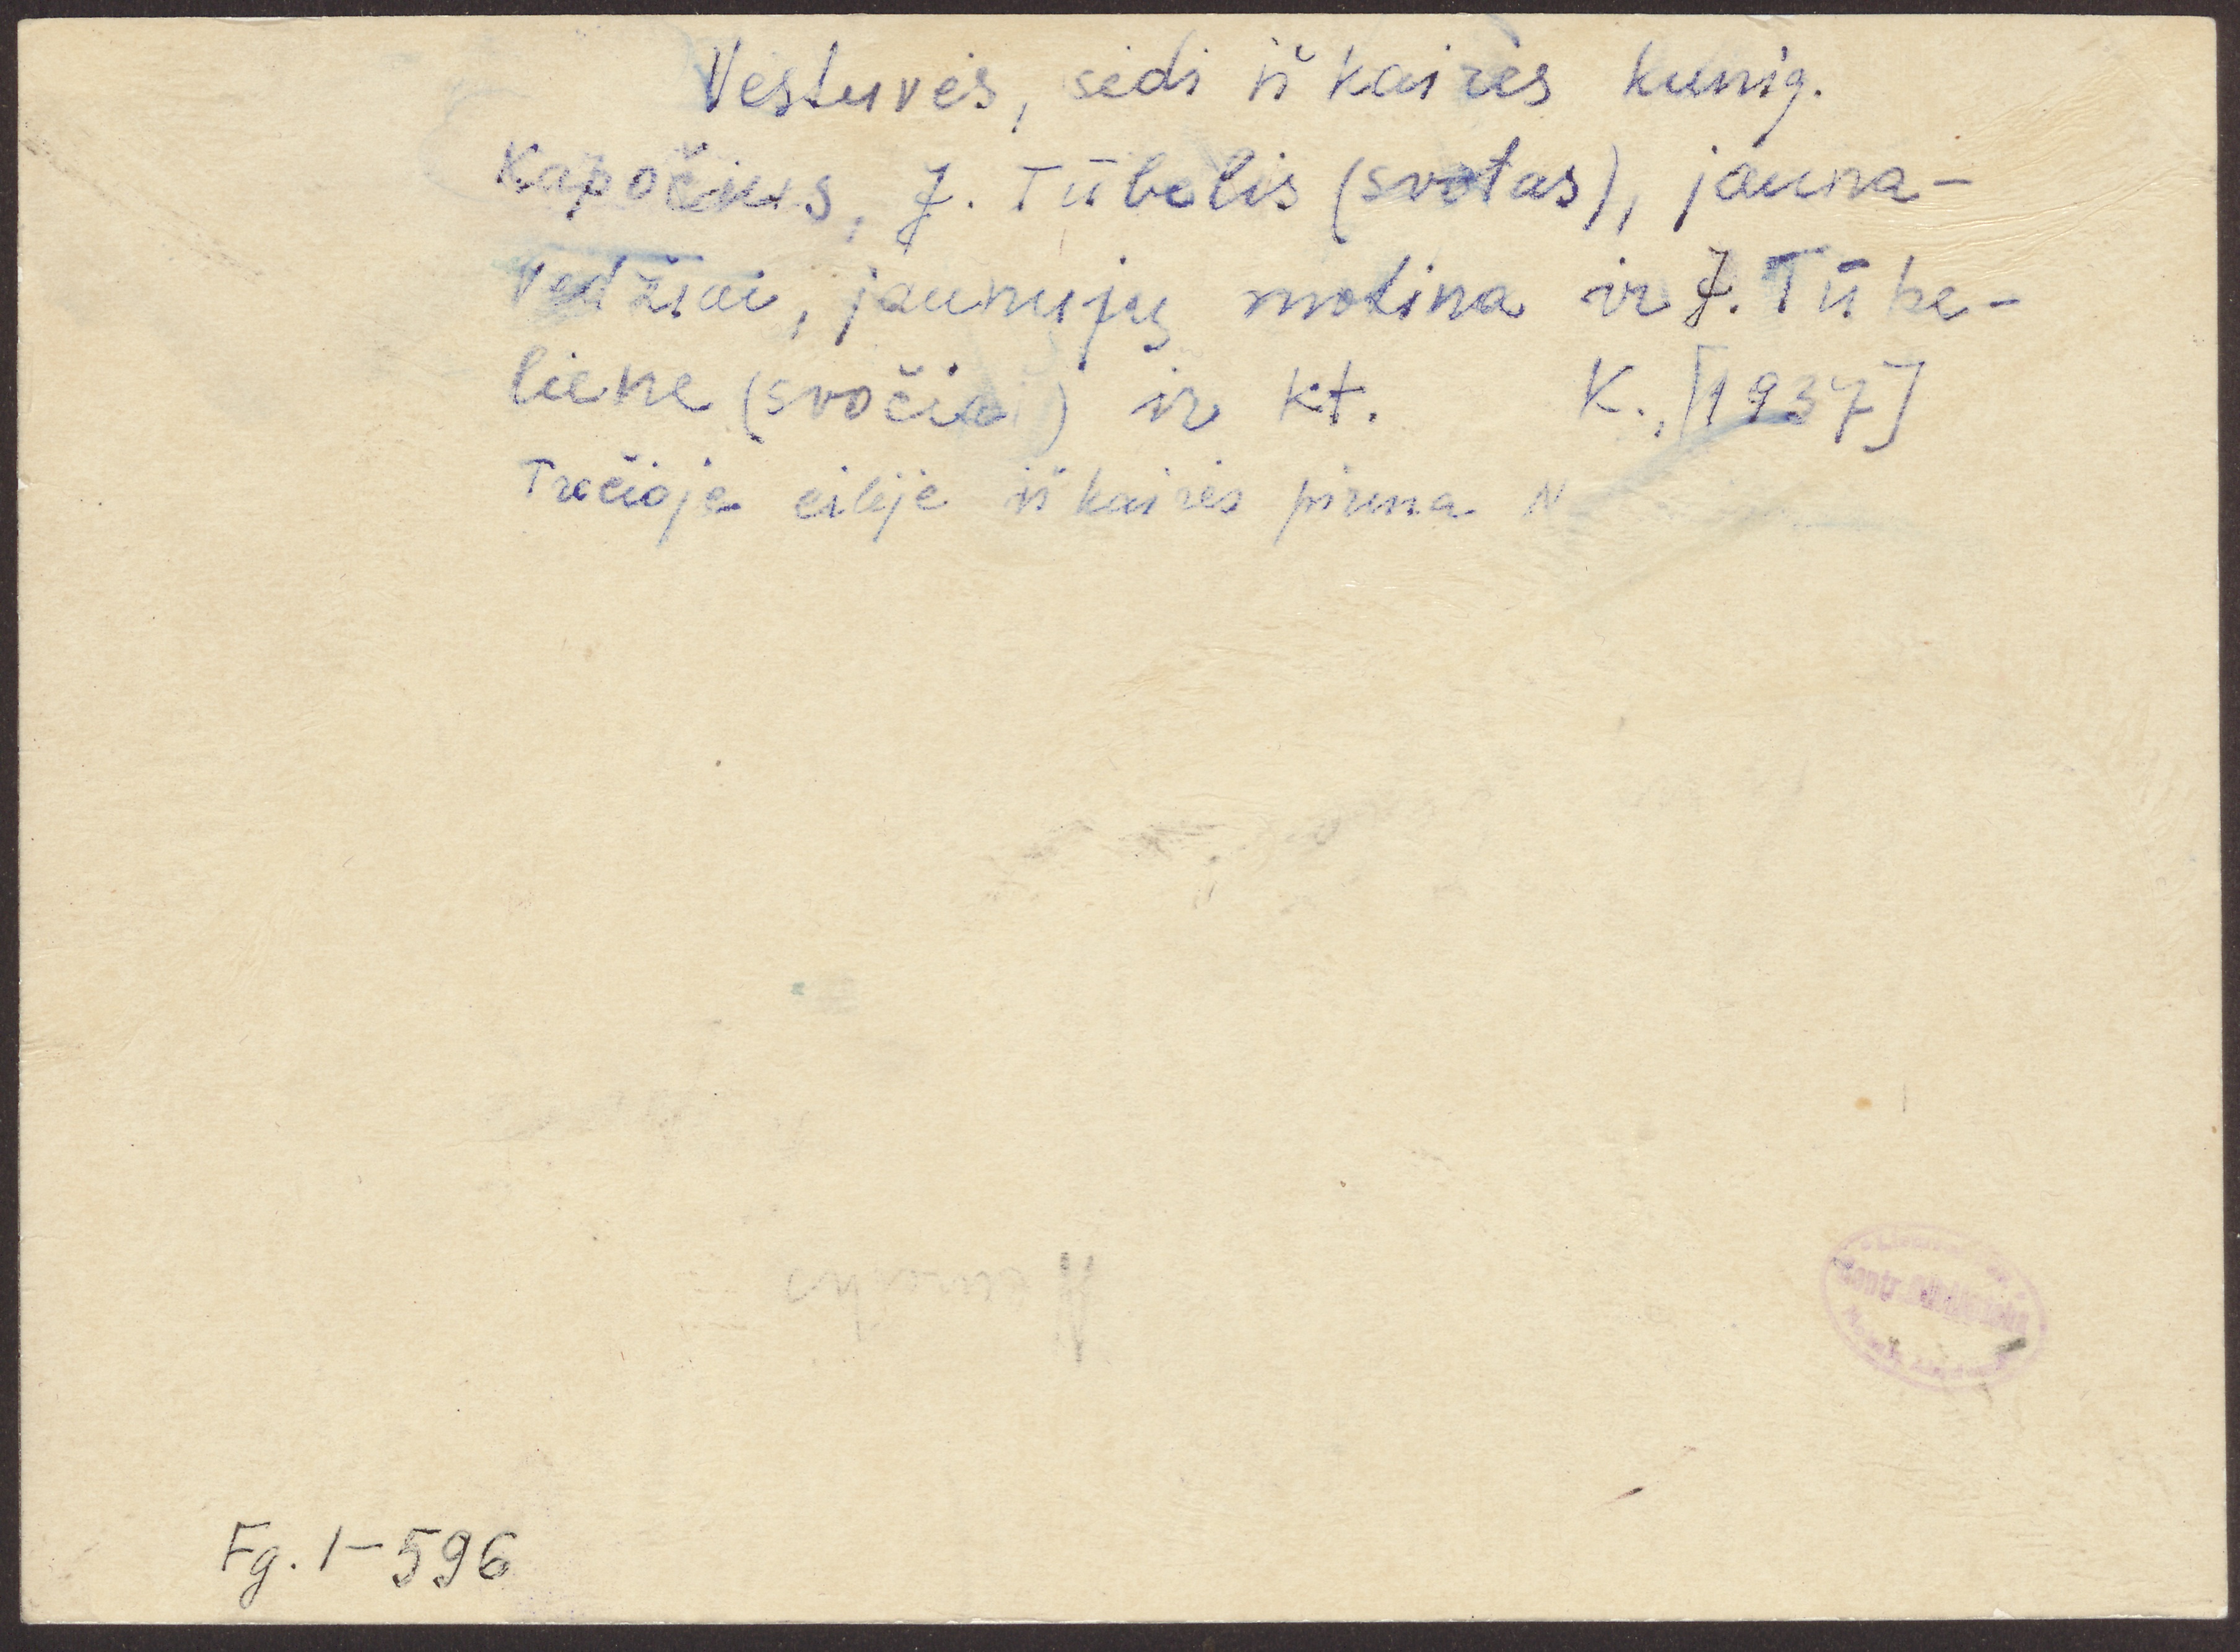 Vestuvės, sėdi iš kairės kunig.
Kapočius, J. Tūbelis (svotas), jauna-
vedžiai, jaunųjų motina ir J. Tūbe-
lienė (svočia) ir kt. K., [1937]
Trečioje eilėje iš kairės pirma N
Fg. 1-596